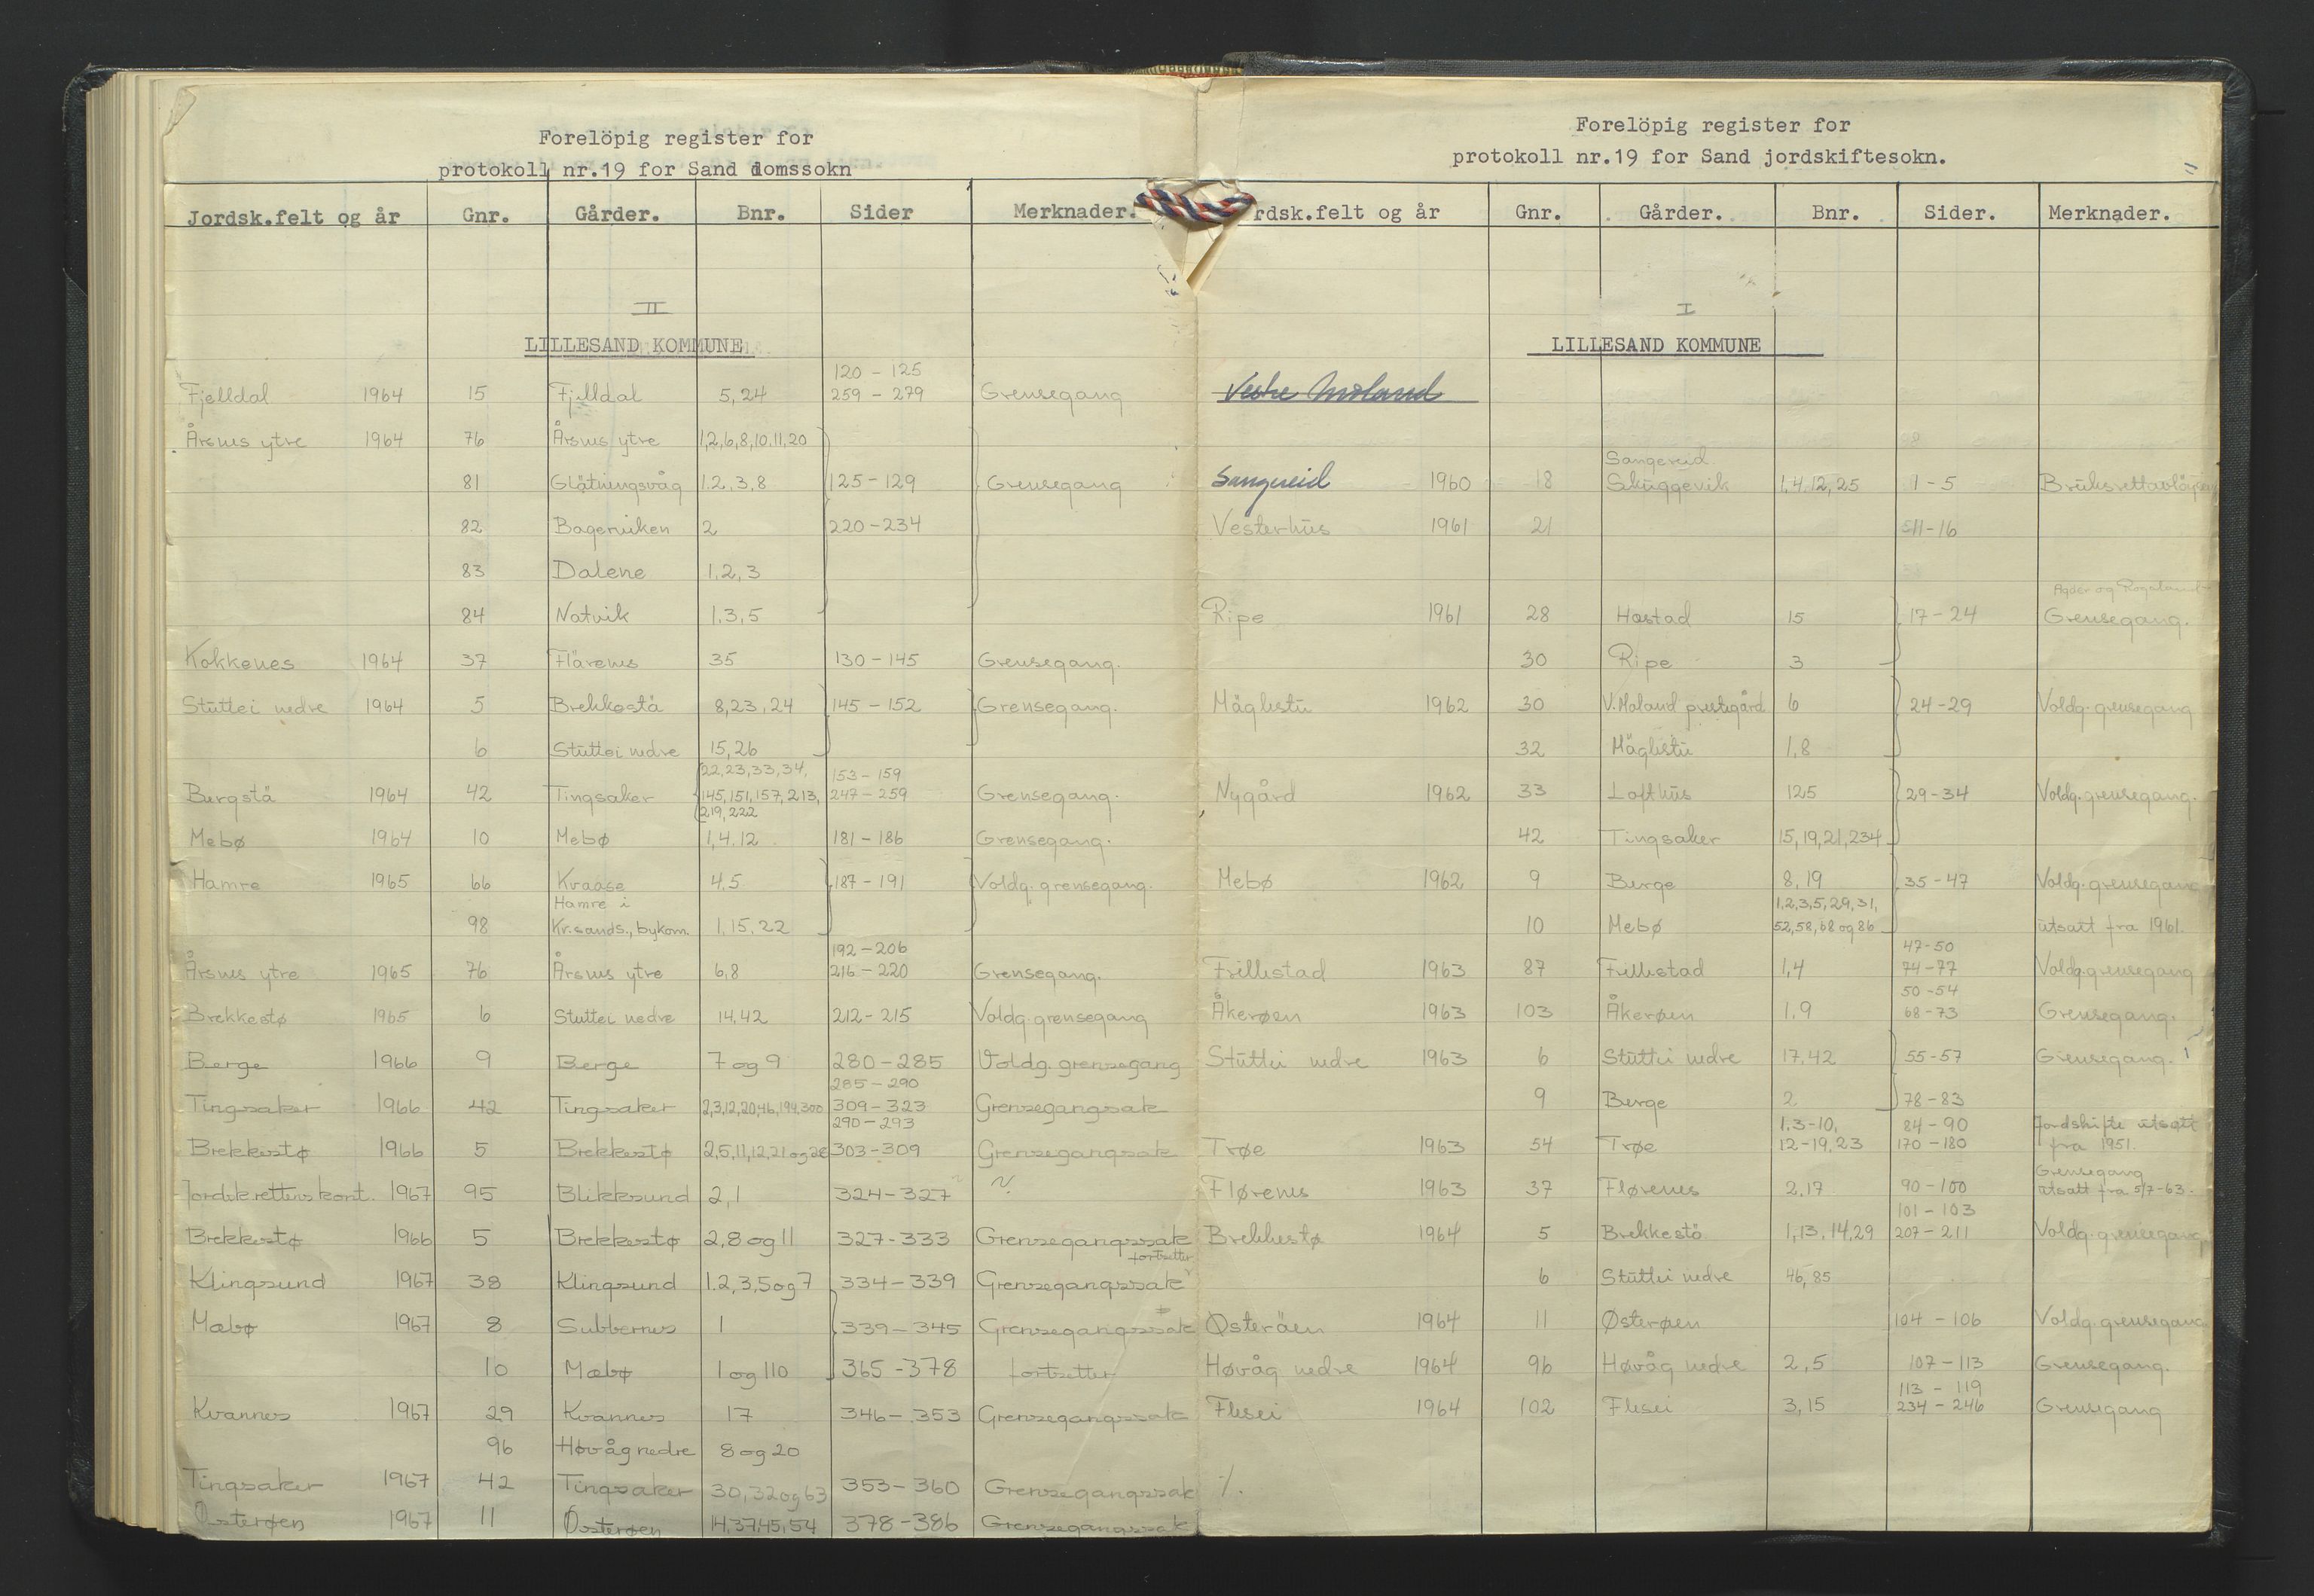 Forelöpig register for
protokoll nr.19 for Sand domssokn
Jordsk.felt og år Gnr. Gårder. Bnr. Sider Merknader.
II
LILLESAND KOMMUNE
120 - 125
Fjelldal 1964 15 Fjelldal 5,24 259 - 279 Grensegang
Årsnes ytre 1964 76 Årsnes ytre 1,2,6,8,10,11,20
81 Glätningsvåg 1.2,3,8 125-129 Grensegang
82 Bagerviken 2 220-234
83 Dalene 1.2,3
84 Natvik 1.3,5
Kokkenes 1964 37 Flärenes 35 130-145 Grensegang.
Stuttei nedre 1964 5 Brekkestä 8,23,24 145-152 Grensegang.
6 Stuttei nedre 15,26
22,23,33,34, 153-159
Bergstä 1964 42 Tingsaker 145,151,157,213, 247-259 Grensegang.
219,222
Mebø 1964 10 Mebø 1,4.12 181-186 Grensegang.
Hamre 1965 66 Kraase 4,5 187-191 Voldg. grensegang.
Hamre i
98 Kr.sands., bykom. 1,15,22
192-206
Årsnes ytre 1965 76 Årsnes ytre 6,8 216-220 Grensegang.
Brekkestø 1965 6 Stuttei nedre 14,42 212-215 Voldg. grensegang
Berge 1966 9 Berge 7 og 9 280-285 Voldg. grensegang
285-290
Tingsaker 1966 42 Tingsaker 2,3,12,20,46,194,300 309-323 Grensegangsak
290-293
Brekkestø 1966 5 Brekkestø 2,5,11,12,21 og 28 303-309 Grensegangsak
Jordsk.rettens kont. 1967 95 Blikksund 2,1 324-327
Brekkestø 1966 5 Brekkestø 2,8 og 11 327-333 Grensegangssak
fortsetter
Klingsund 1967 38 Klingsund 1.2,3,5 og 7 334-339 Grensegangssak
Mæbø 1967 8 Subbernes 1 339-345 Grensegangssak
10 Mæbø 1 og 110 365-378 fortsetter
Kvannes 1967 29 Kvannes 17 346-353 Grensegangssak
96 Høvåg nedre 8 og 20
Tingsaker 1967 42 Tingsaker 30,32 og 63 353-360 Grensegangssak
Østerøen 1967 11 Østerøen 14,37,45,54 378-386 Grensegangssak
Forelöpig register for
protokoll nr.19 for Sand jordskiftesokn.
rdsk.felt og år Gnr. Gårder. Bnr. Sider. Merknader.
I
LILLESAND KOMMUNE
Vestre Moland
Sangereid
Sangereid 1960 18 Skuggevik 1,4.12,25 1-5
Vesterhus 1961 21 11-16
Agder og Rogaland
Ripe 1961 28 Hæstad 15 17-24 Grensegang.
30 Ripe 3
Mäglestu 1962 30 V. Moland prestegård 6 24-29 Voldg. grensegang
32 Mäglestu 1,8
Nygård 1962 33 Lofthus 125 29-34 Voldg. grensegang.
42 Tingsaker 15,19,21,234
Mebø 1962 9 Berge 8,19 35-47 Voldg. grensegang
1,2,3,5,29,31,
10 Mebø 52,58,68 og 86 utsatt fra 1961.
47-50
Frillestad 1963 87 Frillestad 1,4 74-77 Voldg. grensegang
50-54
Åkerøen 1963 103 Åkerøen 1.9 68-73 Grensegang.
Stuttei nedre 1963 6 Stuttei nedre 17.42 55-57 Grensegang.
9 Berge 2 78-83
1.3-10, 84-90 Jordskifte utsatt
Trøe 1963 54 Trøe 12-19,23 170-180 fra 1951.
Grensegang
Flørenes 1963 37 Flørenes 2,17 90-100 utsatt fra 5/7-63.
101-103
Brekkestø 1964 5 Brekkestö 1,13,14,29 207-211 Voldg. grensegang
6 Stuttei nedre 46,85
Østeräen 1964 11 Østerøen 104-106 Voldg. grensegang
Høvåg nedre 1964 96 Høvåg nedre 2,5 107-113 Grensegang.
113 - 119
Flesei 1964 102 Flesei 3,15 234-246 Grensegang
./.